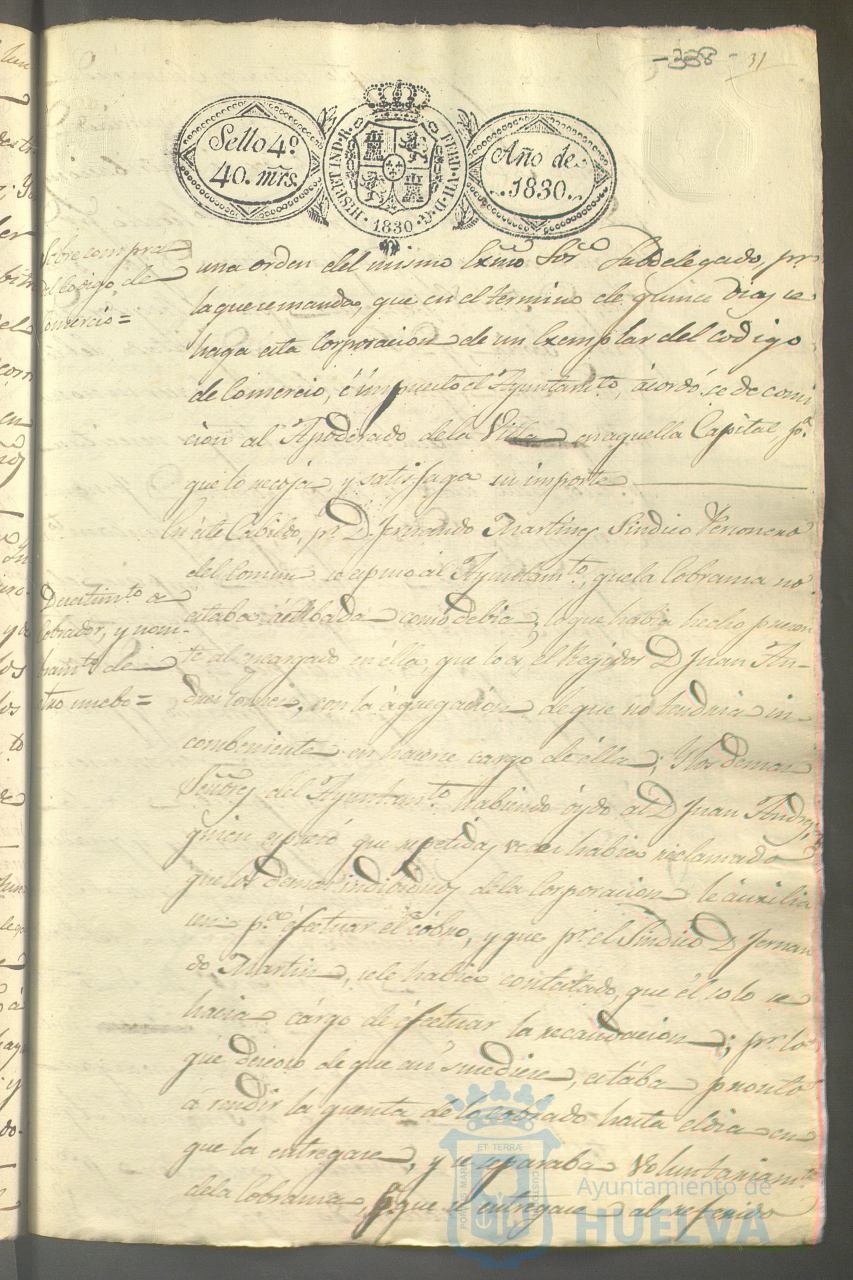 -338- 31
Sello 4º
40. mrs.
HISP. ET IND. R. FERD. VII. D. G. 1830
Año de
1830.
Sobre compra
del codigo de
Comercio=
una orden del mismo Exmo Sor Subdelegado, pr.
la que se manda, que en el termino de quince dias se
haga esta Corporacion de un Exemplar del codigo
de Comercio, é impuesto el Ayuntamto, acordó se de comi
cion al Apoderado de la Villa en aquella Capital pa.
que lo recoja, y satisfaga su importe
En este Cabildo, pr. D. Fernando Martines Sindico Personero
del Comun se espuso al Ayuntamto, que la Cobransa no
estaba activada como debia, lo que habia hecho presen
Decistimto a
Cobrador, y nom-
bramto de
otro nuebo=
te al encargado en élla, que lo és el Regidor D Juan An-
dres, con la agregacion de que no tendria in-
combeniente en hacerse cargo de élla; Y los demas
Señores del Ayuntamto. habiendo óydo al D Juan Andres,
quien espresó que repetidas veces habia reclamado
que los demas individuos de la Corporacion le auxilia
sen pa. éfectuar el cobro, y que pr. el Sindico D Fernan
do Martin, se le habia contestado, que él solo se
hacia cargo de éfectuar la recaudacion; pr. lo
que deseoso de que asi sucediese, estaba pronto
a rendir la quenta de lo cobrado hasta el dia en
que la entregase, y se separaba voluntariamte
de la Cobransa, pa. que se entregase al referido
ET TERRÆ
Ayuntamiento de
HUELVA